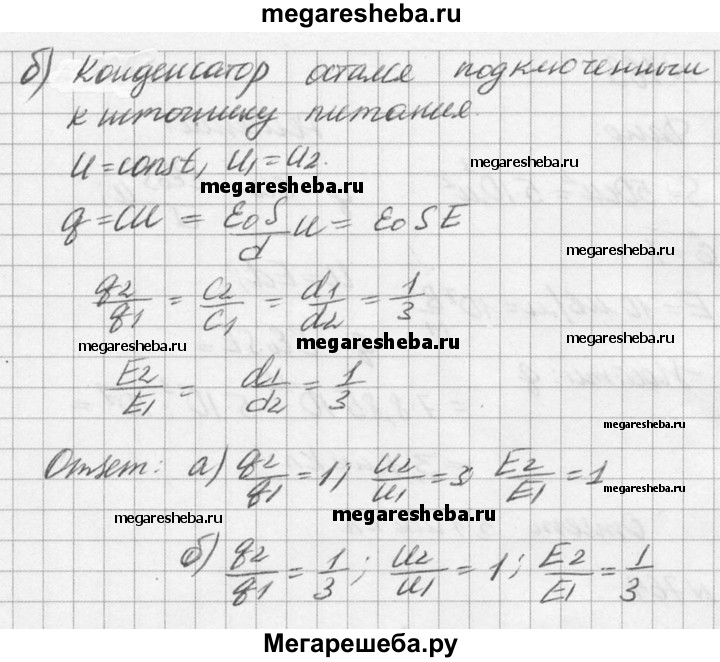 megaresheba.ru
б) Конденсатор остался подключенным
к источнику питания.
U=const, U1=U2.
megaresheba.ru
megaresheba.ru
q=CU = ε0S/d U = ε0SE
megaresheba.ru
q2/q1 = C2/C1 = d1/d2 = 1/3
megaresheba.ru
megaresheba.ru
megaresheba.ru
E2/E1 = d1/d2 = 1/3
megaresheba.ru
megaresheba.ru
Ответ: а) q2/q1 = 1; U2/U1 = 3 E2/E1 = 1
megaresheba.ru
megaresheba.ru
megaresheba.ru
б) q2/q1 = 1/3; U2/U1 = 1; E2/E1 = 1/3
Мегарешеба.ру